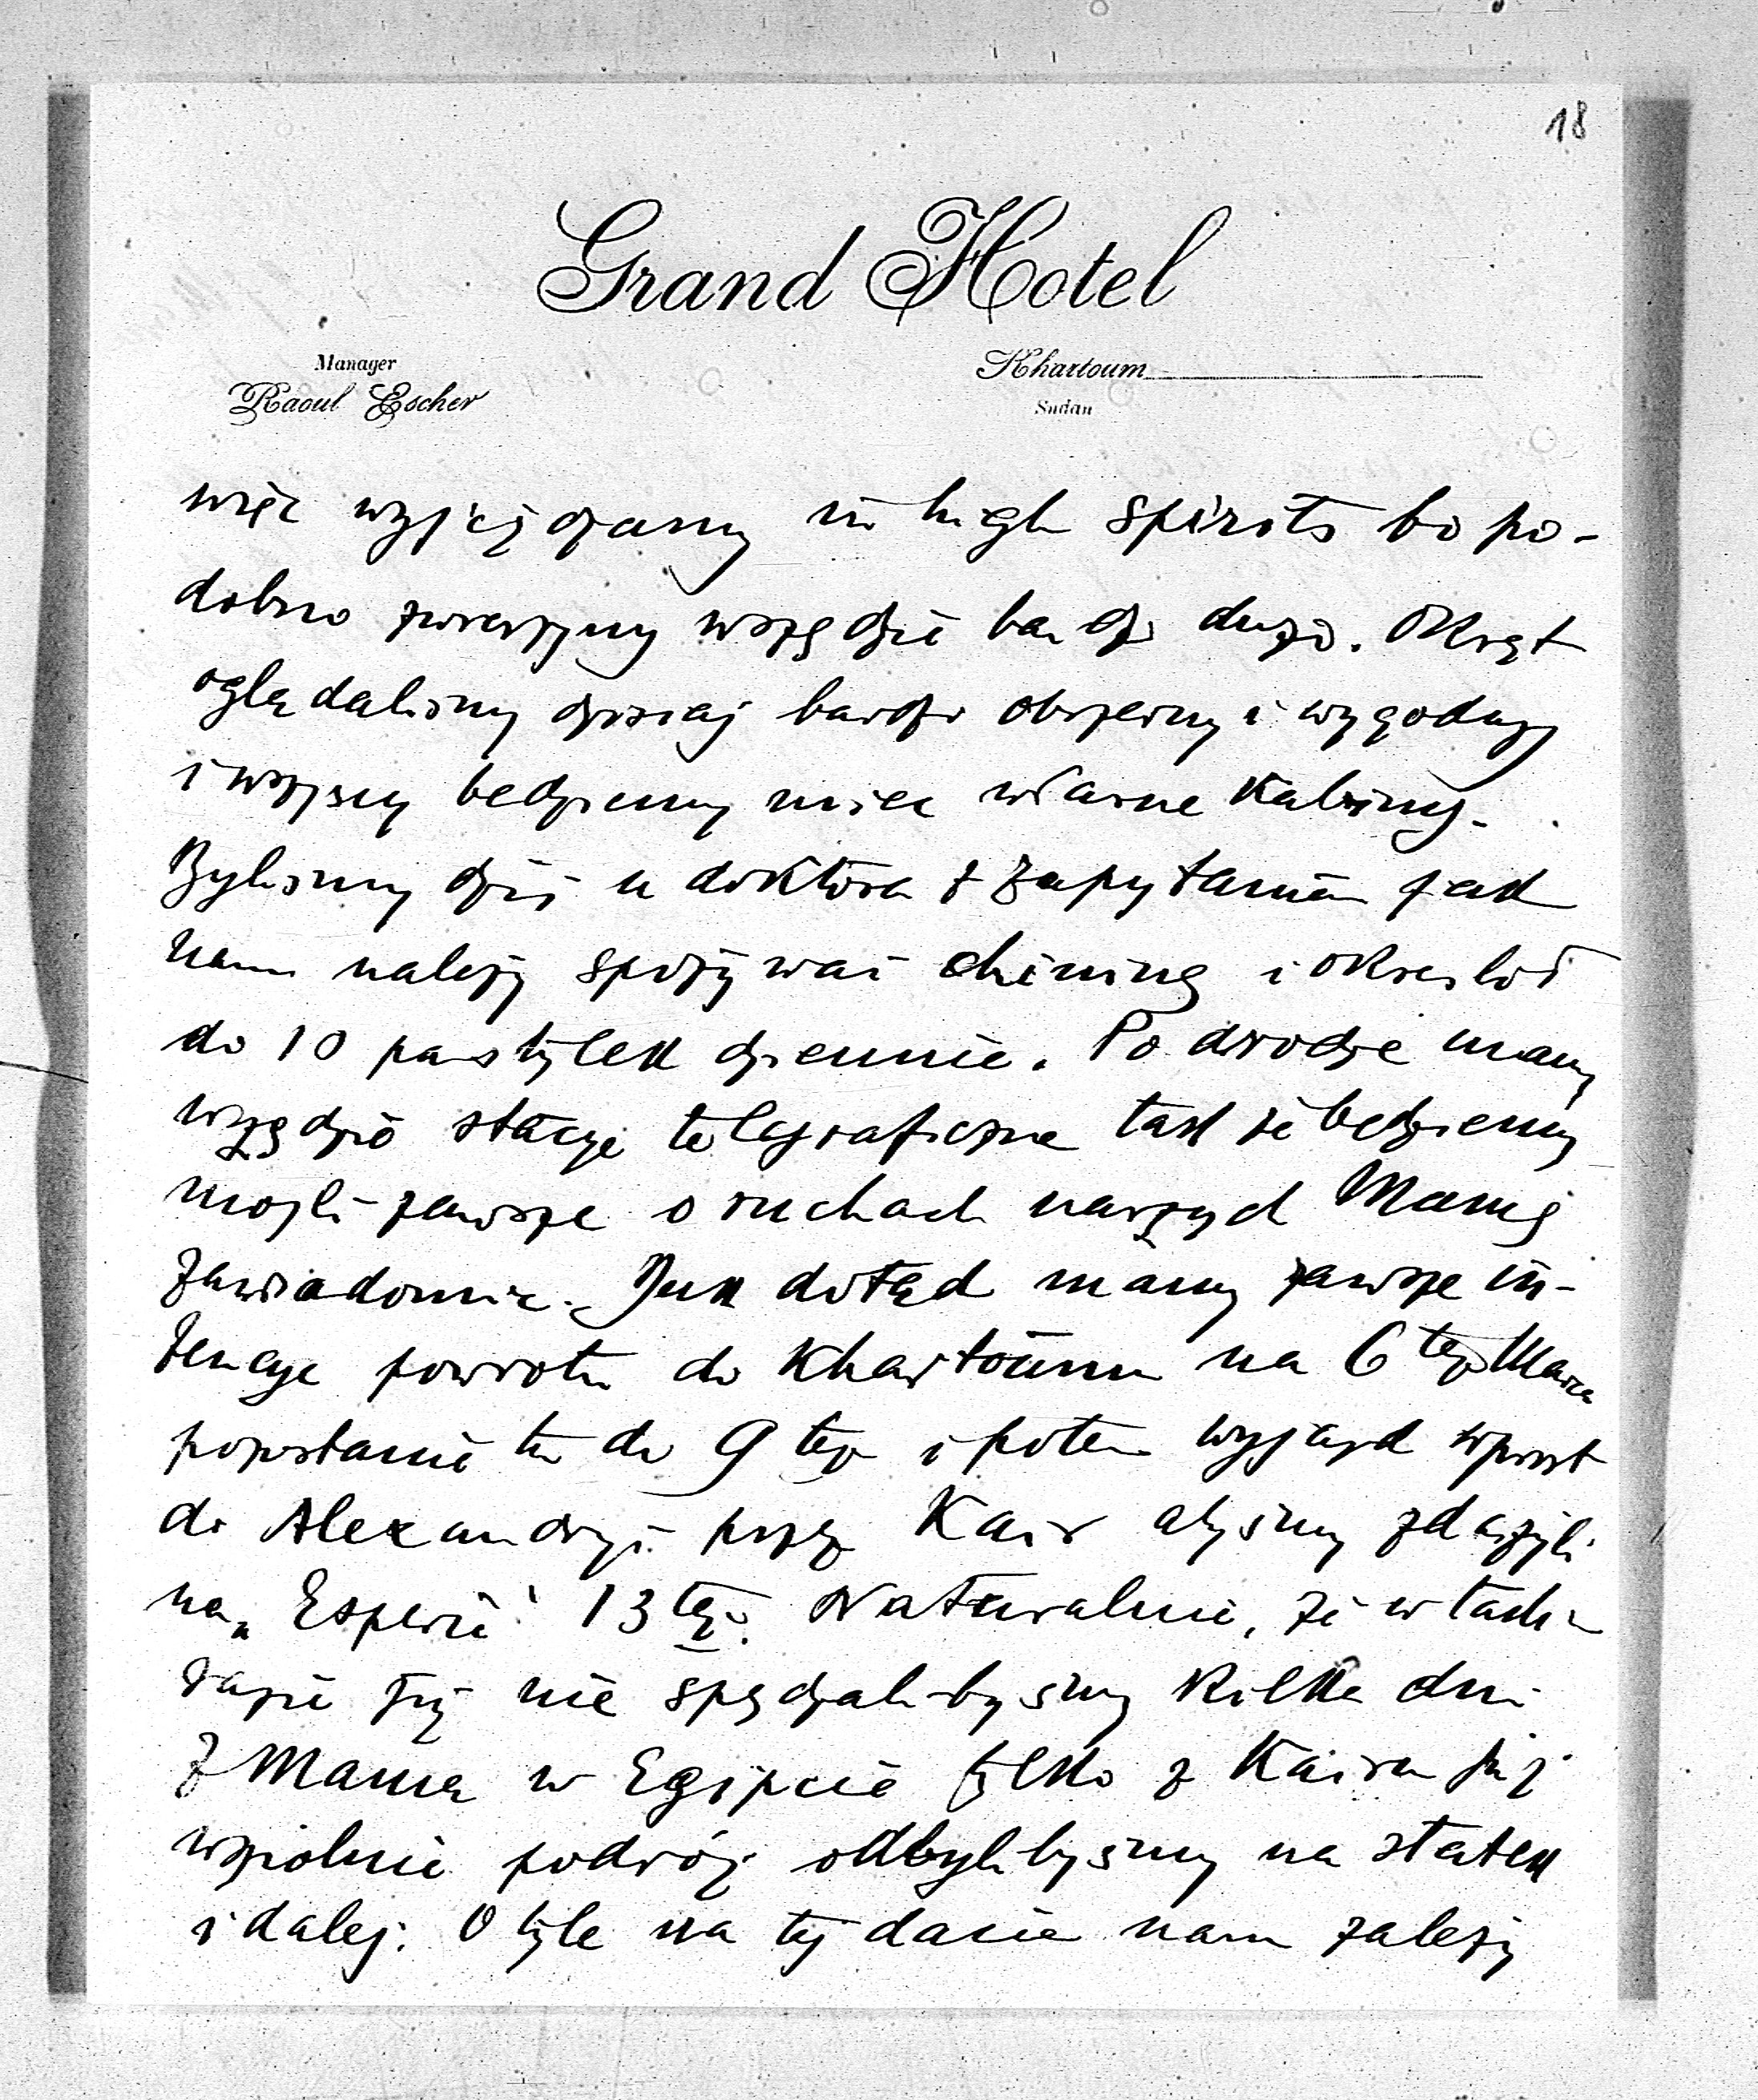 18
Grand Hotel
Manager
Raoul Escher
Khartoum
Sudan
więc wyjeżdzamy in high spirits bo po-
dobno zwierzyny wszędzie bardzo dużo. Okręt
oglądalismy dzisiaj bardzo obszerny i wygodny
i wszyscy będziemy mieć własne kabiny.
Bylismy dziś u doktora z zapytaniem jak
nam należy spożywać chininę i okreslił
do 10 pastylek dziennie. Po drodze mamy
wszędzie stacye telegraficzne tak że będziemy
mogli zawsze o ruchach naszych Mamę
zawiadomić. Jak dotąd mamy zawsze in-
tencye powrotu do Khartoumu na 6 tego Marca
pozostanie tu do 9 tego i potem wyjazd wprost
do Alexandryi przez Kair abysmy zdążyli
na „Esperię" 13 tego. Naturalnie, że w takim
razie już nie spędzalibysmy kilka dni
z Mamą w Egipcie tylko z Kairu już
wspólnie podróż odbylibysmy na statek
i dalej. O tyle na tej dacie nam zależy